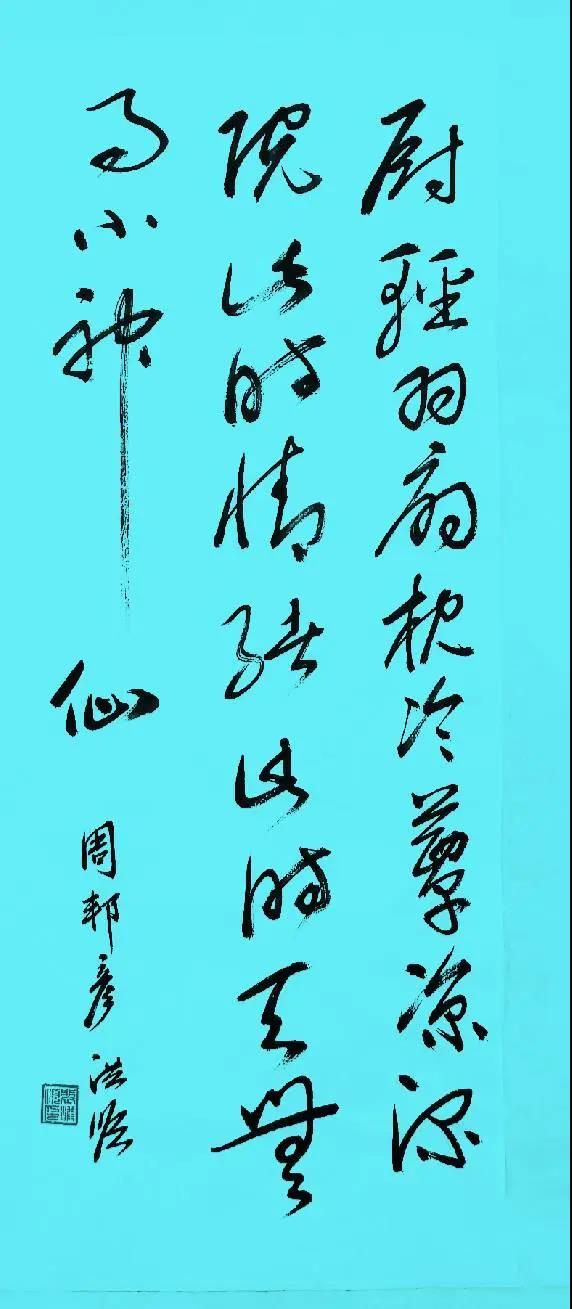 厨輕羽扇枕冷簟凉深
院此时情绪此时天無
事小神仙
周邦彦 洪